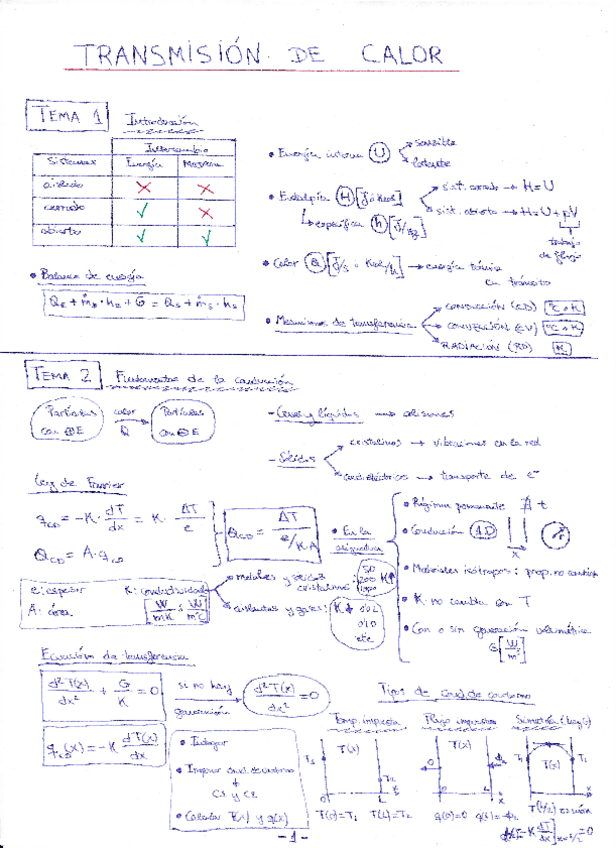 TRANSMISIÓN DE CALOR
TEMA 1 Introducción
Intercambio
Sistemas Energía Materia
aislado
cerrado
abierto
• Energía interna (U) sensible
latente
• Entalpía (H) [J ó Kcal]
sist. cerrado → H = U
sist. abierto → H = U + pV
específica (h) [J/kg]
trabajo
de flujo
• Calor (Q) [J/s ó Kcal/h] → energía térmica
en tránsito
• Balance de energía
Qe + ṁe·he + G = Qs + ṁs·hs
• Mecanismos de transferencia
CONDUCCIÓN (CD) [ºC ó K]
CONVECCIÓN (CV) [ºC ó K]
RADIACIÓN (RD) [K]
TEMA 2 Fundamentos de la conducción
Partículas calor Partículas
con ⊕E Q con ⊖E
- Gases y líquidos → colisiones
- Sólidos
cristalinos → vibraciones en la red
cond. eléctricos → transporte de e⁻
Ley de Fourier
q_CD = -K · dT/dx = K · ΔT/e
Q_CD = ΔT / (e/K·A)
Q_CD = A·q_CD
e: espesor K: conductividad
A: área [W/mK ó W/mºC]
metales y sólidos
cristalinos: K↑
aislantes y gases: K↓
• En la
asignatura
• Régimen permanente ∄ t
• Conducción (1D)
• Materiales isótropos: prop. no cambian
• K no cambia con T
• Con o sin generación volumétrica
G [W/m³]
Ecuación de transferencia
d²T(x)/dx² + G/K = 0
si no hay
generación
d²T(x)/dx² = 0
q_CD(x) = -K dT(x)/dx
• Integrar
• Imponer cond. de contorno
↓
C1 y C2
• Calcular T(x) y q(x)
Tipos de cond. de contorno
Temp. impuesta Flujo impuesto Simetría
T(x) T(x) T(x)
T(0)=T₁ T(L)=T₂
- 1 -